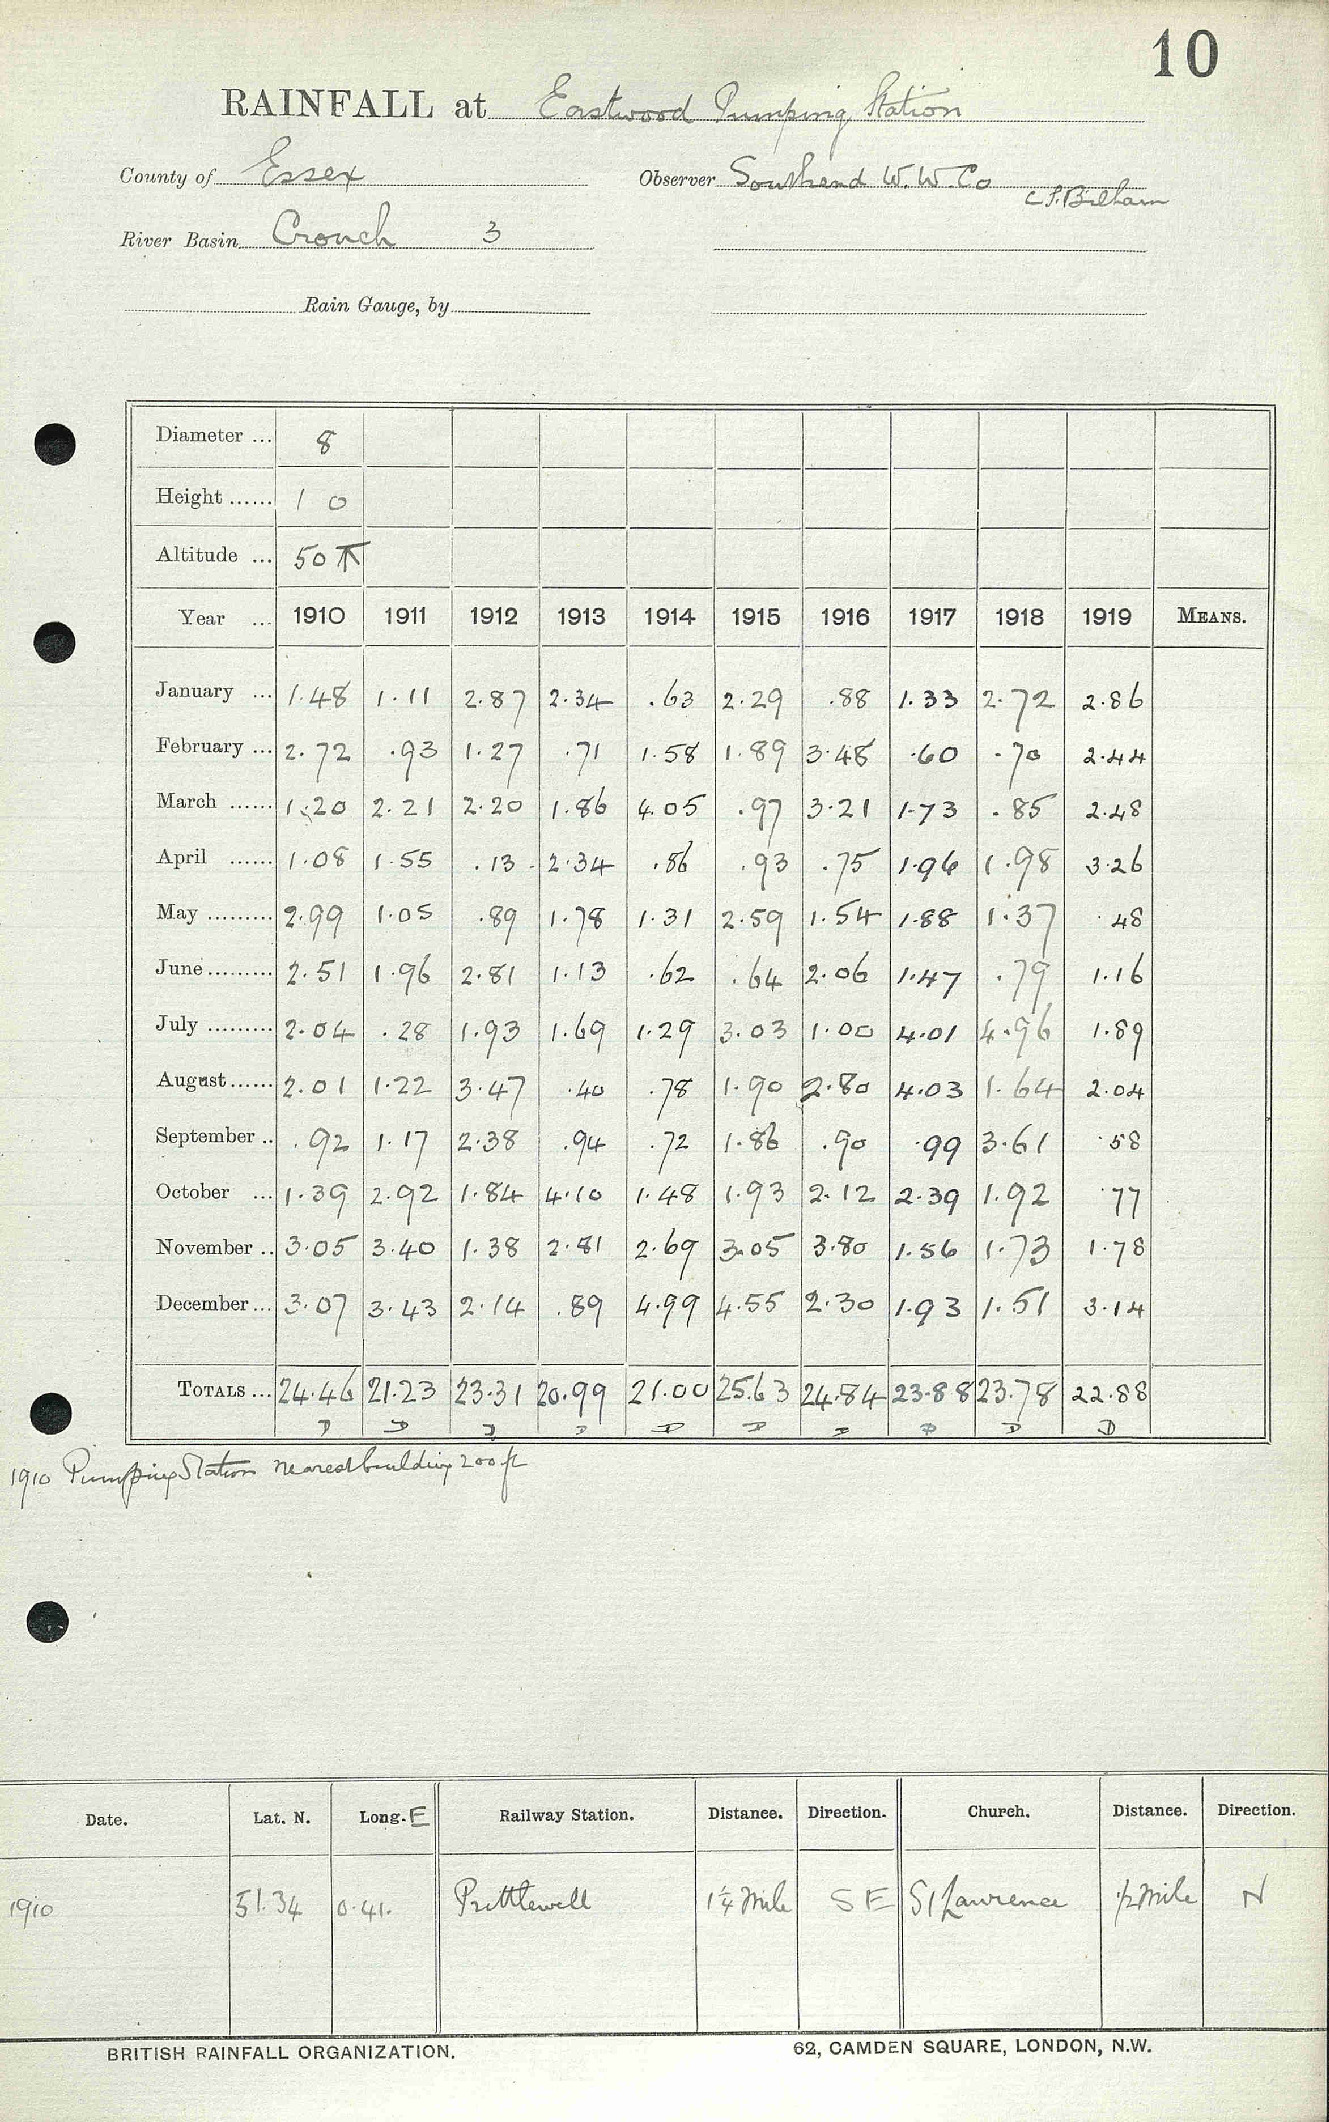 10
RAINFALL at Eastwood Pumping Station
County of Essex Observer Southend W.W.Co
C.S. Bilham
River Basin Crouch 3
Rain Gauge, by
Diameter ... 8
Height ...... 1 0
Altitude ... 50
Year ... 1910 1911 1912 1913 1914 1915 1916 1917 1918 1919 MEANS.
January ... 1.48 1.11 2.87 2.34 .63 2.29 .88 1.33 2.72 2.86
February ... 2.72 .93 1.27 .71 1.58 1.89 3.48 .60 .70 2.44
March ...... 1.20 2.21 2.20 1.86 4.05 .97 3.21 1.73 .85 2.48
April ...... 1.08 1.55 .13 2.34 .86 .93 .75 1.96 1.98 3.26
May ......... 2.99 1.05 .89 1.78 1.31 2.59 1.54 1.88 1.37 .48
June ......... 2.51 1.96 2.81 1.13 .62 .64 2.06 1.47 .79 1.16
July ......... 2.04 .28 1.93 1.69 1.29 3.03 1.00 4.01 4.96 1.89
August ...... 2.01 1.22 3.47 .40 .78 1.90 2.80 4.03 1.64 2.04
September .. .92 1.17 2.38 .94 .72 1.86 .90 .99 3.61 .58
October ... 1.39 2.92 1.84 4.10 1.48 1.93 2.12 2.39 1.92 .77
November .. 3.05 3.40 1.38 2.81 2.69 3.05 3.80 1.56 1.73 1.78
December ... 3.07 3.43 2.14 .89 4.99 4.55 2.30 1.93 1.51 3.14
TOTALS ... 24.46 21.23 23.31 20.99 21.00 25.63 24.84 23.88 23.78 22.88
D D D D D D D D D D
1910 Pumping Station nearest building 200 ft
Date. Lat. N. Long. E Railway Station. Distance. Direction. Church. Distance. Direction.
1910 51.34 0.41. Prittlewell 1¼ Mile SE St Lawrence ½ Mile N
BRITISH RAINFALL ORGANIZATION. 62, CAMDEN SQUARE, LONDON, N.W.